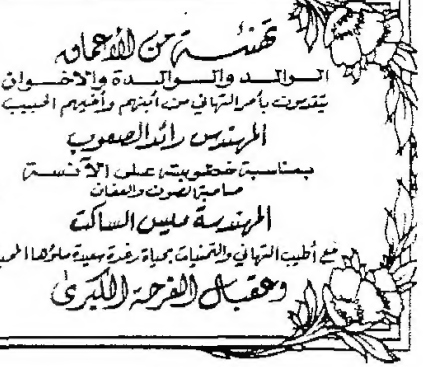 تهنئة من الأعماق
الوالد والوالدة والاخوان
يتقدمون بأحر التهاني من ابنهم وأخيهم الحبيب
المهندس رائد الصعوب
بمناسبة خطوبته على الآنسة
صاحبة الصون والعفاف
المهندسة ميس الساكت
مع أطيب التهاني والتمنيات بحياة رغدة سعيدة ملؤها
وعقبال الفرحة الكبرى